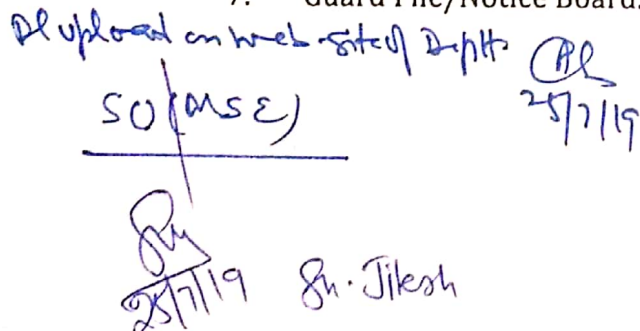 7. Guard File/Notice Board.
Pl upload on web-site of Deptt.
25/7/19
SO (MSE)
25/7/19 Sh. Jitesh